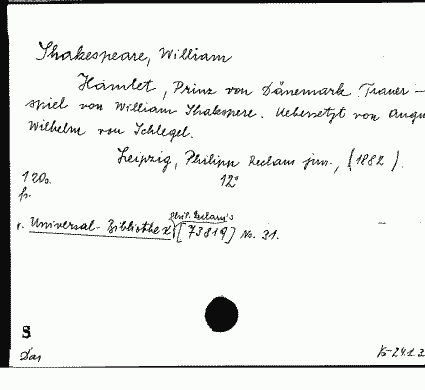 Shakespeare, William
Hamlet, Prinz von Dänemark. Trauer-
spiel von William Shakspere. Uebersetzt von Augu
Wilhelm von Schlegel.
Leipzig, Philipp Reclam jun., (1882).
120s. 12°
fr.
Phil. Reclam's
r. Universal-Bibliothek [73819] No. 31.
S
Das